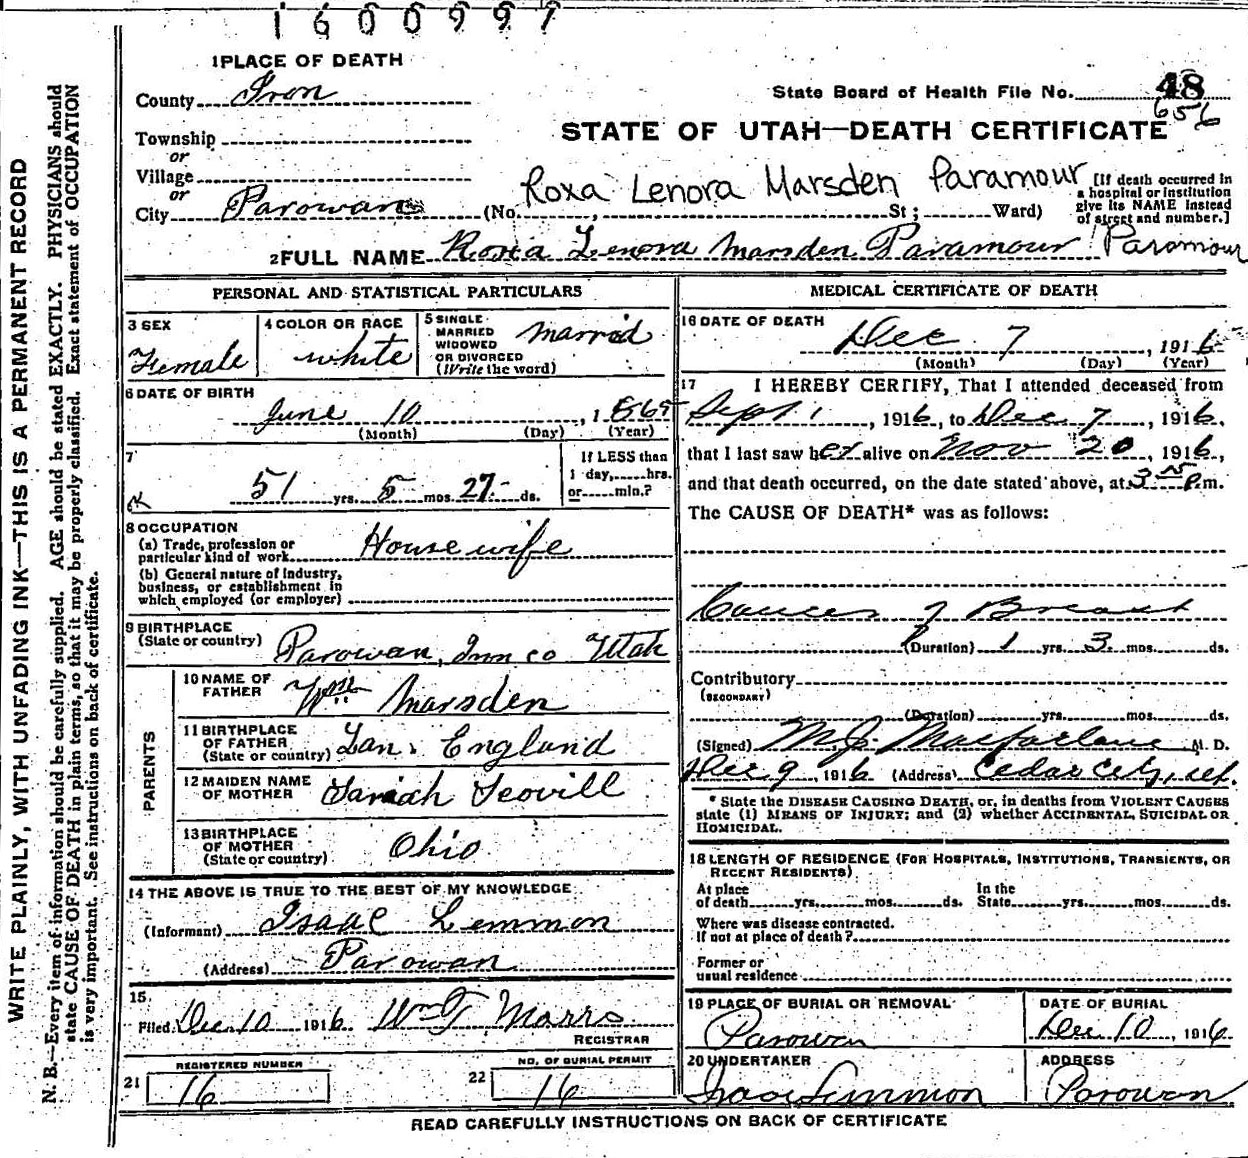 1600997
1 PLACE OF DEATH
County Iron
State Board of Health File No. 48
656
Township
or
Village
or
City Parowan
STATE OF UTAH—DEATH CERTIFICATE
Roxa Lenora Marsden Paramour
(No. , St ; Ward)
[If death occurred in
a hospital or institution
give its NAME instead
of street and number.]
2 FULL NAME Roxa Lenora Marsden Paramour Paramour
PERSONAL AND STATISTICAL PARTICULARS
3 SEX
Female
4 COLOR OR RACE
white
5 SINGLE
MARRIED
WIDOWED
OR DIVORCED
(Write the word)
Married
6 DATE OF BIRTH
June 10, 1865
(Month) (Day) (Year)
7
51 yrs. 5 mos. 27 ds.
If LESS than
1 day, hrs.
or min.?
8 OCCUPATION
(a) Trade, profession or
particular kind of work House wife
(b) General nature of Industry,
business, or establishment in
which employed (or employer)
9 BIRTHPLACE
(State or country) Parowan, Iron co Utah
PARENTS
10 NAME OF
FATHER Wm Marsden
11 BIRTHPLACE
OF FATHER
(State or country) Lan. England
12 MAIDEN NAME
OF MOTHER Sariah Scovill
13 BIRTHPLACE
OF MOTHER
(State or country) Ohio
14 THE ABOVE IS TRUE TO THE BEST OF MY KNOWLEDGE
(Informant) Isaac Lemmon
(Address) Parowan
15
Filed Dec 10 1916 Wm T Marrs
REGISTRAR
REGISTERED NUMBER
21 16
NO. OF BURIAL PERMIT
22 16
MEDICAL CERTIFICATE OF DEATH
16 DATE OF DEATH
Dec 7, 1916
(Month) (Day) (Year)
17 I HEREBY CERTIFY, That I attended deceased from
Sept 1, 1916, to Dec 7, 1916,
that I last saw her alive on Nov 20, 1916,
and that death occurred, on the date stated above, at 3 P.m.
The CAUSE OF DEATH* was as follows:
Cancer of Breast
(Duration) 1 yrs. 3 mos. ds.
Contributory
(SECONDARY)
(Duration) yrs. mos. ds.
(Signed) M. J. Macfarlane M. D.
Dec 9, 1916 (Address) Cedar City, Ut.
* State the DISEASE CAUSING DEATH, or, in deaths from VIOLENT CAUSES
state (1) MEANS OF INJURY; and (2) whether ACCIDENTAL, SUICIDAL OR
HOMICIDAL.
18 LENGTH OF RESIDENCE (FOR HOSPITALS, INSTITUTIONS, TRANSIENTS, OR
RECENT RESIDENTS)
At place In the
of death yrs. mos. ds. State yrs. mos. ds.
Where was disease contracted.
If not at place of death?
Former or
usual residence
19 PLACE OF BURIAL OR REMOVAL
Parowan
DATE OF BURIAL
Dec 10, 1916
20 UNDERTAKER
Isaac Lemmon
ADDRESS
Parowan
READ CAREFULLY INSTRUCTIONS ON BACK OF CERTIFICATE
WRITE PLAINLY, WITH UNFADING INK—THIS IS A PERMANENT RECORD
N. B.—Every item of information should be carefully supplied. AGE should be stated EXACTLY. PHYSICIANS should
state CAUSE OF DEATH in plain terms, so that it may be properly classified. Exact statement of OCCUPATION
is very important. See instructions on back of certificate.